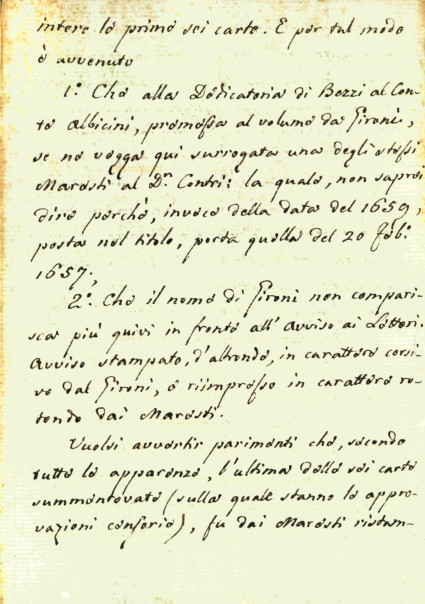 intere le prime sei carte. E per tal modo
è avvenuto
1.° Che alla Dedicatoria di Bezzi al Con-
te Albicini, premessa al volume da Gironi,
se ne vegga qui surrogata una degli stessi
Maresti al D.r Contri: la quale, non saprei
dire perchè, invece della data del 1659,
posta nel titolo, porta quella del 20 Feb.°
1657;
2.° Che il nome di Gironi non compari-
sca più quivi in fronte all'Avviso ai Lettori.
Avviso stampato, d'altronde, in carattere corsi-
vo dal Gironi, e riimpresso in carattere ro-
tondo dai Maresti.
Vuolsi avvertir parimenti che, secondo
tutte le apparenze, l'ultima delle sei carte
summentovate (sulla quale stanno le appro-
vazioni censorie), fu dai Maresti ristam-